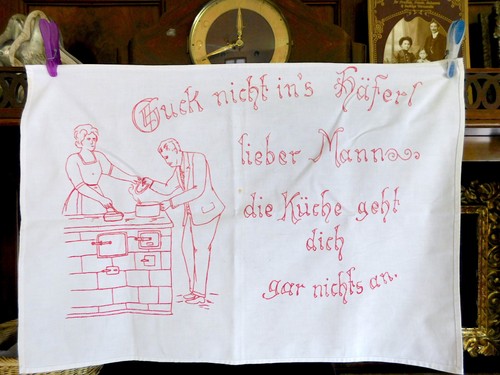 Guck nicht in's Häferl
lieber Mann
die Küche geht
dich
gar nichts an.